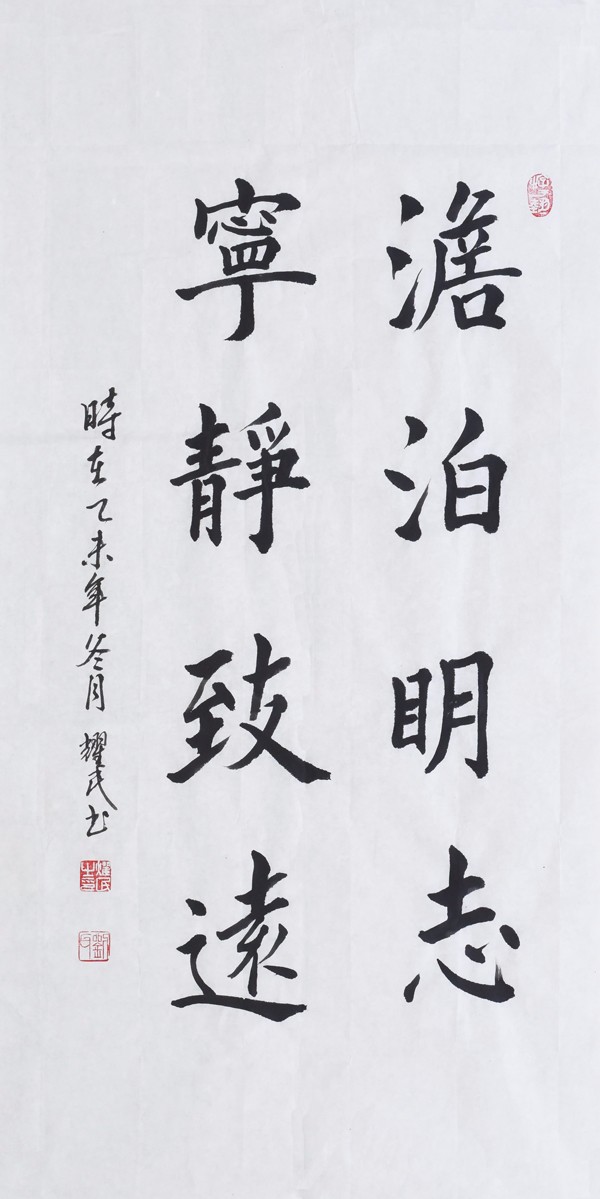 澹泊明志
寧靜致遠
時在乙未年冬月 耀民书